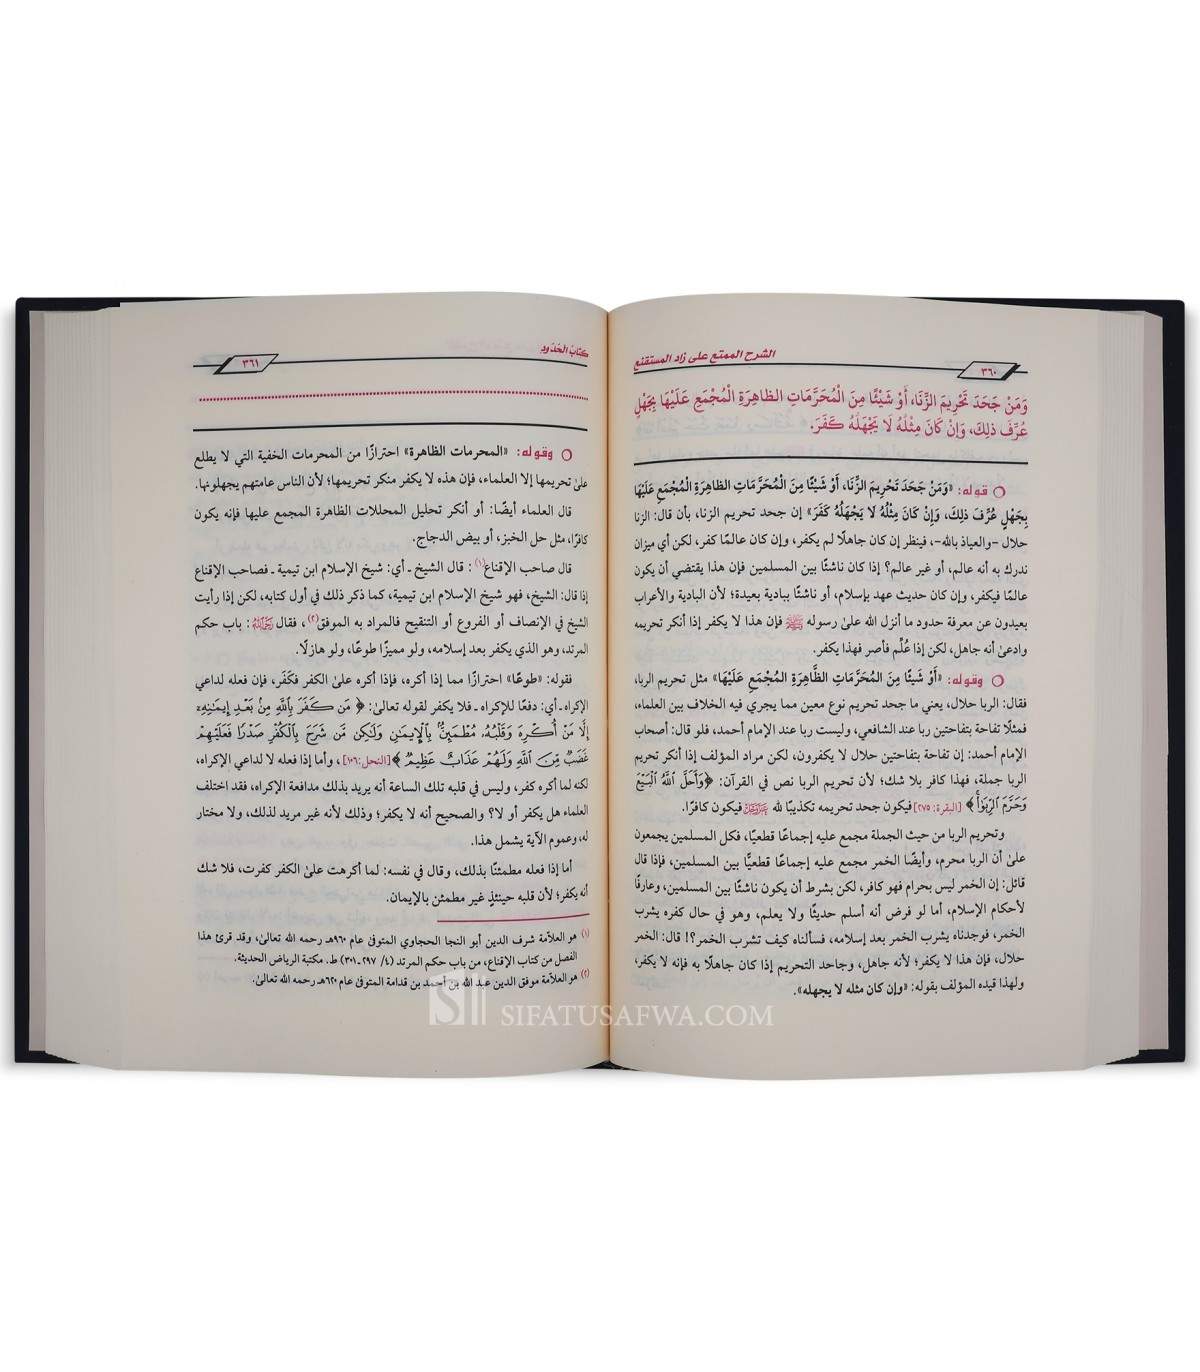 الشرح الممتع على زاد المستقنع
٣٦٠
وَمَنْ جَحَدَ تَحْرِيمَ الزِّنَا، أَوْ شَيْئًا مِنَ الْمُحَرَّمَاتِ الظاهِرَةِ الْمُجْمَعِ عَلَيْهَا بِجَهْلٍ
عُرِّفَ ذلِكَ، وَإِنْ كَانَ مِثْلُهُ لَا يَجْهَلُهُ كَفَرَ.
○ قوله: «وَمَنْ جَحَدَ تَحْرِيمَ الزِّنَا، أَوْ شَيْئًا مِنَ الْمُحَرَّمَاتِ الظاهِرَةِ الْمُجْمَعِ عَلَيْهَا
بِجَهْلٍ عُرِّفَ ذلِكَ، وَإِنْ كَانَ مِثْلُهُ لَا يَجْهَلُهُ كَفَرَ» إن جحد تحريم الزنا، بأن قال: الزنا
حلال -والعياذ بالله-، فينظر إن كان جاهلًا لم يكفر، وإن كان عالمًا كفر، لكن أي ميزان
ندرك به أنه عالم، أو غير عالم؟ إذا كان ناشئًا بين المسلمين فإن هذا يقتضي أن يكون
عالمًا فيكفر، وإن كان حديث عهد بإسلام، أو ناشئًا ببادية بعيدة؛ لأن البادية والأعراب
بعيدون عن معرفة حدود ما أنزل الله على رسوله ﷺ فإن هذا لا يكفر إذا أنكر تحريمه
وادعى أنه جاهل، لكن إذا عُلِّم فأصر فهذا يكفر.
○ وقوله: «أَوْ شَيْئًا مِنَ المُحَرَّمَاتِ الظَّاهِرَةِ المُجْمَعِ عَلَيْهَا» مثل تحريم الربا،
فقال: الربا حلال، يعني ما جحد تحريم نوع معين مما يجري فيه الخلاف بين العلماء،
فمثلًا تفاحة بتفاحتين ربا عند الشافعي، وليست ربا عند الإمام أحمد، فلو قال: أصحاب
الإمام أحمد: إن تفاحة بتفاحتين حلال لا يكفرون، لكن مراد المؤلف إذا أنكر تحريم
الربا جملة، فهذا كافر بلا شك؛ لأن تحريم الربا نص في القرآن: ﴿وَأَحَلَّ ٱللَّهُ ٱلْبَيْعَ
وَحَرَّمَ ٱلرِّبَوٰا۟﴾ [البقرة: ٢٧٥] فيكون جحد تحريمه تكذيبًا لله عز وجل فيكون كافرًا.
وتحريم الربا من حيث الجملة مجمع عليه إجماعًا قطعيًا، فكل المسلمين يجمعون
على أن الربا محرم، وأيضًا الخمر مجمع عليه إجماعًا قطعيًّا بين المسلمين، فإذا قال
قائل: إن الخمر ليس بحرام فهو كافر، لكن بشرط أن يكون ناشئًا بين المسلمين، وعارفًا
لأحكام الإسلام، أما لو فرض أنه أسلم حديثًا ولا يعلم، وهو في حال كفره يشرب
الخمر، فوجدناه يشرب الخمر بعد إسلامه، فسألناه كيف تشرب الخمر؟! قال: الخمر
حلال، فإن هذا لا يكفر؛ لأنه جاهل، وجاحد التحريم إذا كان جاهلًا به فإنه لا يكفر،
ولهذا قيده المؤلف بقوله: «وإن كان مثله لا يجهله».
كتاب الحدود
٣٦١
○ وقوله: «المحرمات الظاهرة» احترازًا من المحرمات الخفية التي لا يطلع
على تحريمها إلا العلماء، فإن هذه لا يكفر منكر تحريمها؛ لأن الناس عامتهم يجهلونها.
قال العلماء أيضًا: أو أنكر تحليل المحللات الظاهرة المجمع عليها فإنه يكون
كافرًا، مثل حل الخبز، أو بيض الدجاج.
قال صاحب الإقناع(١): قال الشيخ ـ أي: شيخ الإسلام ابن تيمية ـ فصاحب الإقناع
إذا قال: الشيخ، فهو شيخ الإسلام ابن تيمية، كما ذكر ذلك في أول كتابه، لكن إذا رأيت
الشيخ في الإنصاف أو الفروع أو التنقيح فالمراد به الموفق(٢)، فقال رحمه الله: باب حكم
المرتد، وهو الذي يكفر بعد إسلامه، ولو مميزًا طوعًا، ولو هازلًا.
فقوله: «طوعًا» احترازًا مما إذا أكره، فإذا أكره على الكفر فكَفَر، فإن فعله لداعي
الإكراه ـ أي: دفعًا للإكراه ـ فلا يكفر لقوله تعالى: ﴿مَن كَفَرَ بِٱللَّهِ مِنۢ بَعْدِ إِيمَٰنِهِۦٓ
إِلَّا مَنْ أُكْرِهَ وَقَلْبُهُۥ مُطْمَئِنٌّۢ بِٱلْإِيمَٰنِ وَلَٰكِن مَّن شَرَحَ بِٱلْكُفْرِ صَدْرًا فَعَلَيْهِمْ
غَضَبٌ مِّنَ ٱللَّهِ وَلَهُمْ عَذَابٌ عَظِيمٌ﴾ [النحل: ١٠٦]، وأما إذا فعله لا لداعي الإكراه،
لكنه لما أكره كفر، وليس في قلبه تلك الساعة أنه يريد بذلك مدافعة الإكراه، فقد اختلف
العلماء هل يكفر أو لا؟ والصحيح أنه لا يكفر؛ وذلك لأنه غير مريد لذلك، ولا مختار
له، وعموم الآية يشمل هذا.
أما إذا فعله مطمئنًا بذلك، وقال في نفسه: لما أكرهت على الكفر كفرت، فلا شك
أنه يكفر؛ لأن قلبه حينئذٍ غير مطمئن بالإيمان.
(١) هو العلاّمة شرف الدين أبو النجا الحجاوي المتوفى عام ٩٦٠هـ رحمه الله تعالى، وقد قرئ هذا
الفصل من كتاب الإقناع، من باب حكم المرتد (٤/ ٢٩٧ ـ ٣٠١) ط. مكتبة الرياض الحديثة.
(٢) هو العلاّمة موفق الدين عبد الله بن أحمد بن قدامة المتوفى عام ٦٢٠هـ رحمه الله تعالى.
SIFATUSAFWA.COM